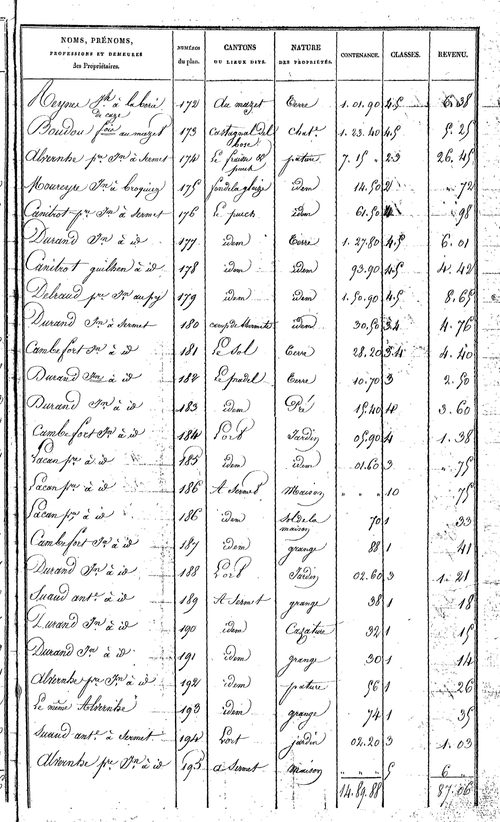 NOMS, PRÉNOMS, PROFESSIONS ET DEMEURES des Propriétaires. NUMÉROS du plan. CANTONS OU LIEUX DITS. NATURE DES PROPRIÉTÉS. CONTENANCE. CLASSES. REVENU.
à la 172 au mazet terre 1. 01. 90 4.5 6. 38
Boudou au mazet 173 castagnal del bosc chat.e 1. 23. 40 4.5 5. 25
Alvernhe p.re J.n à Sermet 174 pature 7. 15 " 2.3 26. 45
J.n à 175 idem 14.50 2 " 72
Canitrot p.re J.n à Sermet 176 Le puech idem 61.50 " 98
Durand J.n à id 177 idem terre 1. 27.80 4.5 6. 01
Canitrot guilhen à id 178 idem idem 93.90 4.5 4. 42
Delraud p.re J.n au puy 179 idem idem 1. 50.90 4.5 8. 65
Durand J.n à Sermet 180 idem 30.50 3.4 4. 76
Cambefort J.n à id 181 Le Sol terre 28.20 3.4 4. 40
Durand J.n à id 182 Le pradel terre 10.70 3 2. 50
Durand J.n à id 183 idem Pré 15.40 4 3. 60
Cambefort J.n à id 184 Lort Jardin 05.90 4 1. 38
Lacan p.re à id 185 idem idem 01.60 3 " 75
Lacan p.re à id 186 A Sermet Maison " " " 10 " 75
Lacan p.re à id 186 idem sol de la maison 70 1 " 33
Cambefort J.n à id 187 idem grange 88 1 " 41
Durand J.n à id 188 Lort Jardin 02.60 3 1. 21
Suaud ant.e à id 189 A Sermet grange 38 1 " 18
Durand J.n à id 190 idem Cazature 32 1 " 15
Durand J.n à id 191 idem grange 30 1 " 14
Alvernhe p.re J.n à id 192 idem pature 56 1 " 26
Le même Alvernhe 193 idem grange 74 1 " 35
Suaud ant.e à Sermet 194 Lort jardin 02.20 3 1. 03
Alvernhe p.re J.n à id 195 a Sermet maison " " " 5 6 "
14. 89. 88 87. 06